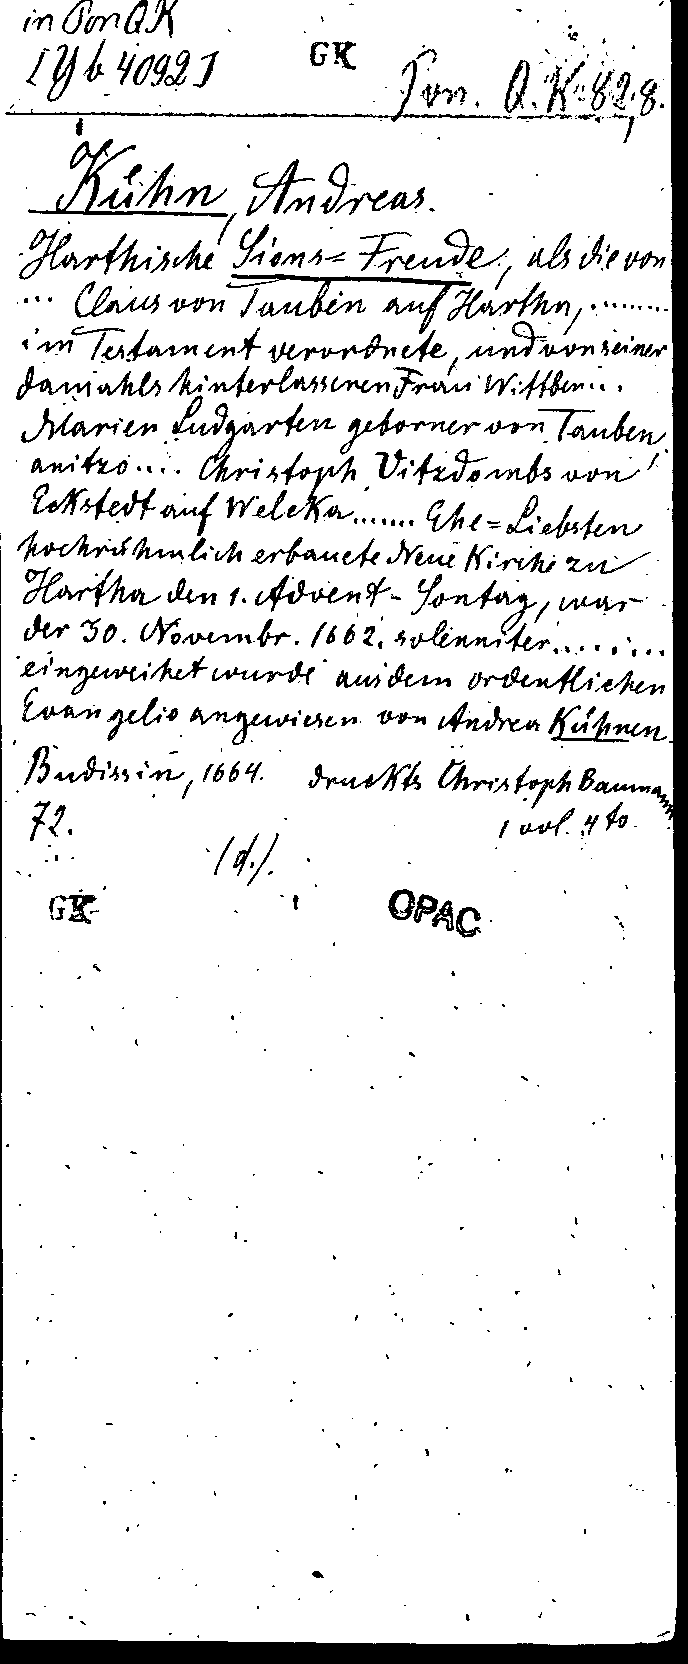 in Pon QK
[Yb 4092]
GK
Pon. Q. K. 82,8.
Kühn, Andreas.
Harthische Sions= Freude, als die von
... Claus von Tauben auf Hartha, ........
im Testament verordnete, und von seiner
damahls hinterlassenen Frau Wittben...
Marien Ludgarten geborner von Tauben,
anitzo.... Christoph Vitzdombs von
Eckstedt auf Welcka....... Ehe=Liebsten
hochrühmlich erbauete Neue Kirche zu
Hartha den 1. Advent- Sontag, war
der 30. Novembr. 1662. solenniter........
eingeweihet wurde aus dem ordentlichen
Evangelio angewiesen von Andrea Kühnen.
Budissin, 1664. druckts Christoph Baumann.
72.
1 vol. 4to.
(d.).
GK
OPAC